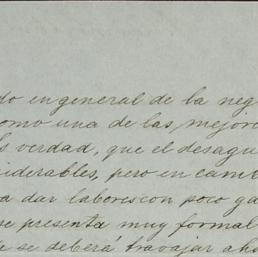 do en general de la neg
como una de las mejor
es verdad, que el desagu
siderables, pero en camb
a dar labores con poco ga
se presenta muy formal
se deberá trabajar aho